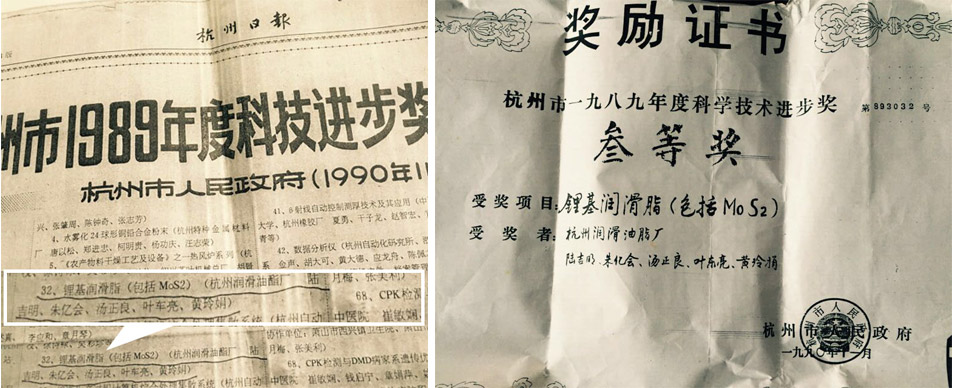 杭州日报
州市1989年度科技进步奖
杭州市人民政府(1990年1
兴、张肇周、陈钟奇、张志芳)
4、水雾化24球形铜铅合金粉末(杭州特种金属材料
唐以松、郑进忠、柯明贵、杨功庆、汪志荣)
5、《农产物料干燥工艺及设备》之一热风炉系列
41、β射线自动控制测厚技术及其应用(中
学、杭州橡胶厂 夏勇、干子龙、赵智宏、
青等)
42、数据分析仪(杭州自动化研究所、
金声、胡大可、黄大德、应龙舟、陈佩
32、锂基润滑脂(包括MoS2)(杭州润滑油脂厂 陆
吉明、朱亿会、汤正良、叶东亮、黄玲娟)
月梅、张美利)
68、CPK检测
崔敏娴
32、锂基润滑脂(包括MoS2)(杭州润滑油脂厂 陆
吉明、朱亿会、汤正良、叶东亮、黄玲娟)
月梅、张美利)
68、CPK检测与DMD病家系遗传优
奖励证书
杭州市一九八九年度科学技术进步奖 第893032号
叁等奖
受奖项目:锂基润滑脂(包括MoS2)
受奖者:杭州润滑油脂厂
陆吉明、朱亿会、汤正良、叶东亮、黄玲娟
杭州市人民政府
一九九〇年十一月